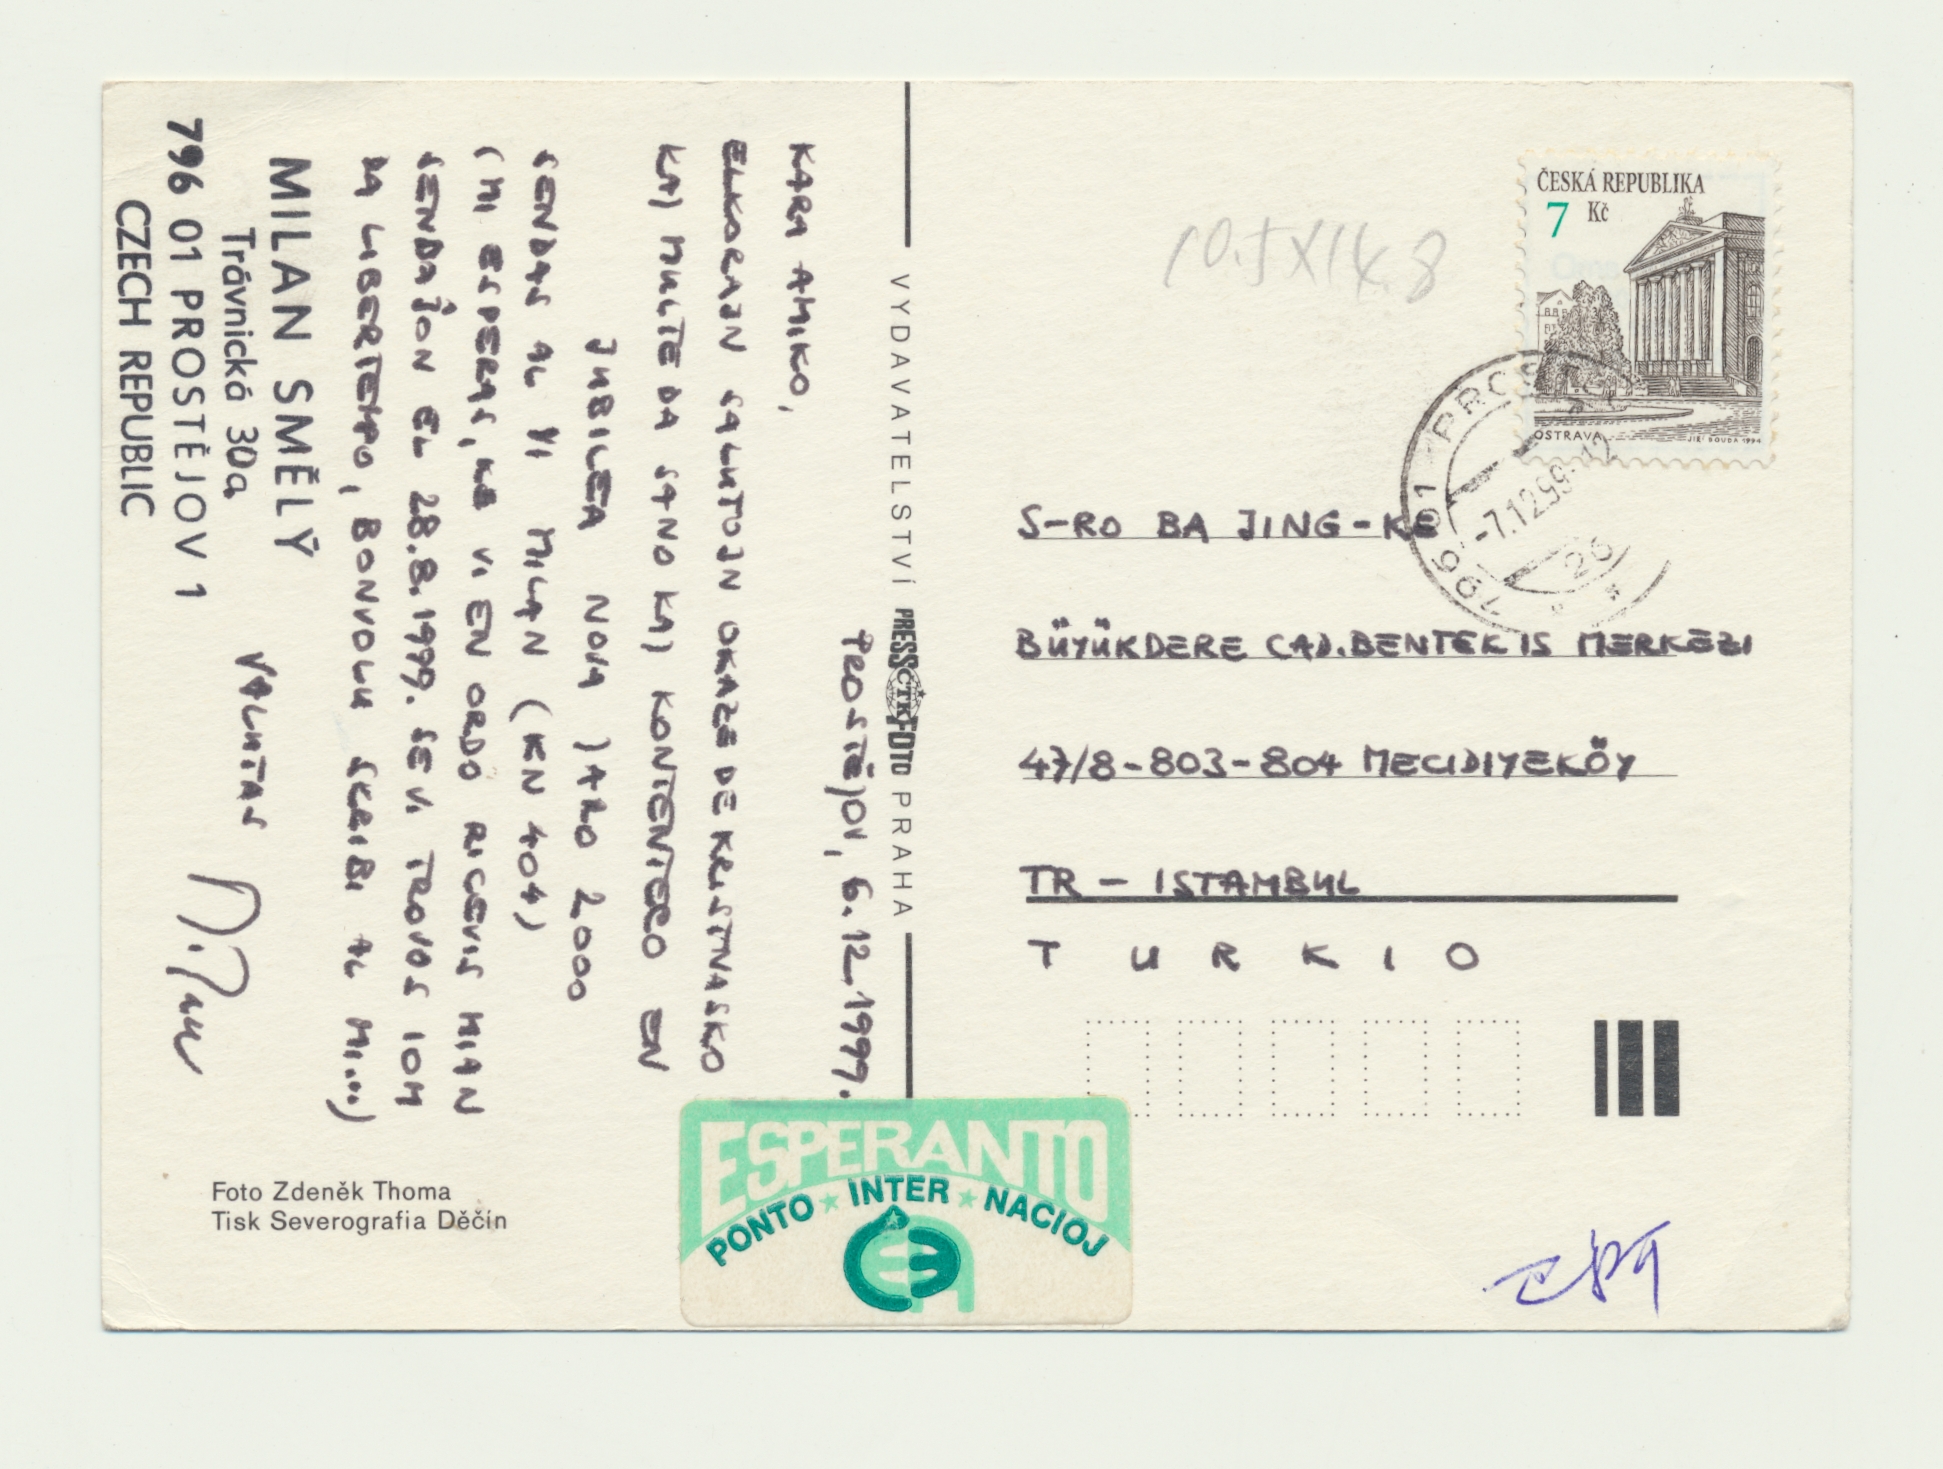 PROSTĚJOV, 6.12.1999.
KARA AMIKO,
ELKORAJN SALUTOJN OKAZE DE KRISTNASKO
KAJ MULTE DA SANO KAJ KONTENTECO EN
JUBILEA NOVA JARO 2000
SENDAS AL VI MILAN (KN 404)
(MI ESPERAS, KE VI EN ORDO RICEVIS MIAN
SENDAĴON EL 28.8.1999. SE VI TROVOS IOM
DA LIBERTEMPO, BONVOLU SKRIBI AL MI...)
VALUTAS
MILAN SMĚLÝ
Trávnická 30a
796 01 PROSTĚJOV 1
CZECH REPUBLIC
Foto Zdeněk Thoma
Tisk Severografia Děčín
VYDAVATELSTVÍ PRESSFOTO PRAHA
ČTK
ESPERANTO
PONTO INTER NACIOJ
10.5X14.8
ČESKÁ REPUBLIKA
7 Kč
OSTRAVA
JIŘÍ BOUDA 1994
796 01 PROSTĚJOV
-7.12.99-12
26
S-RO BA JING-KE
BÜYÜKDERE CAD. BENTEK IS MERKEZI
47/8-803-804 MECIDIYEKÖY
TR - ISTAMBUL
TURKIO